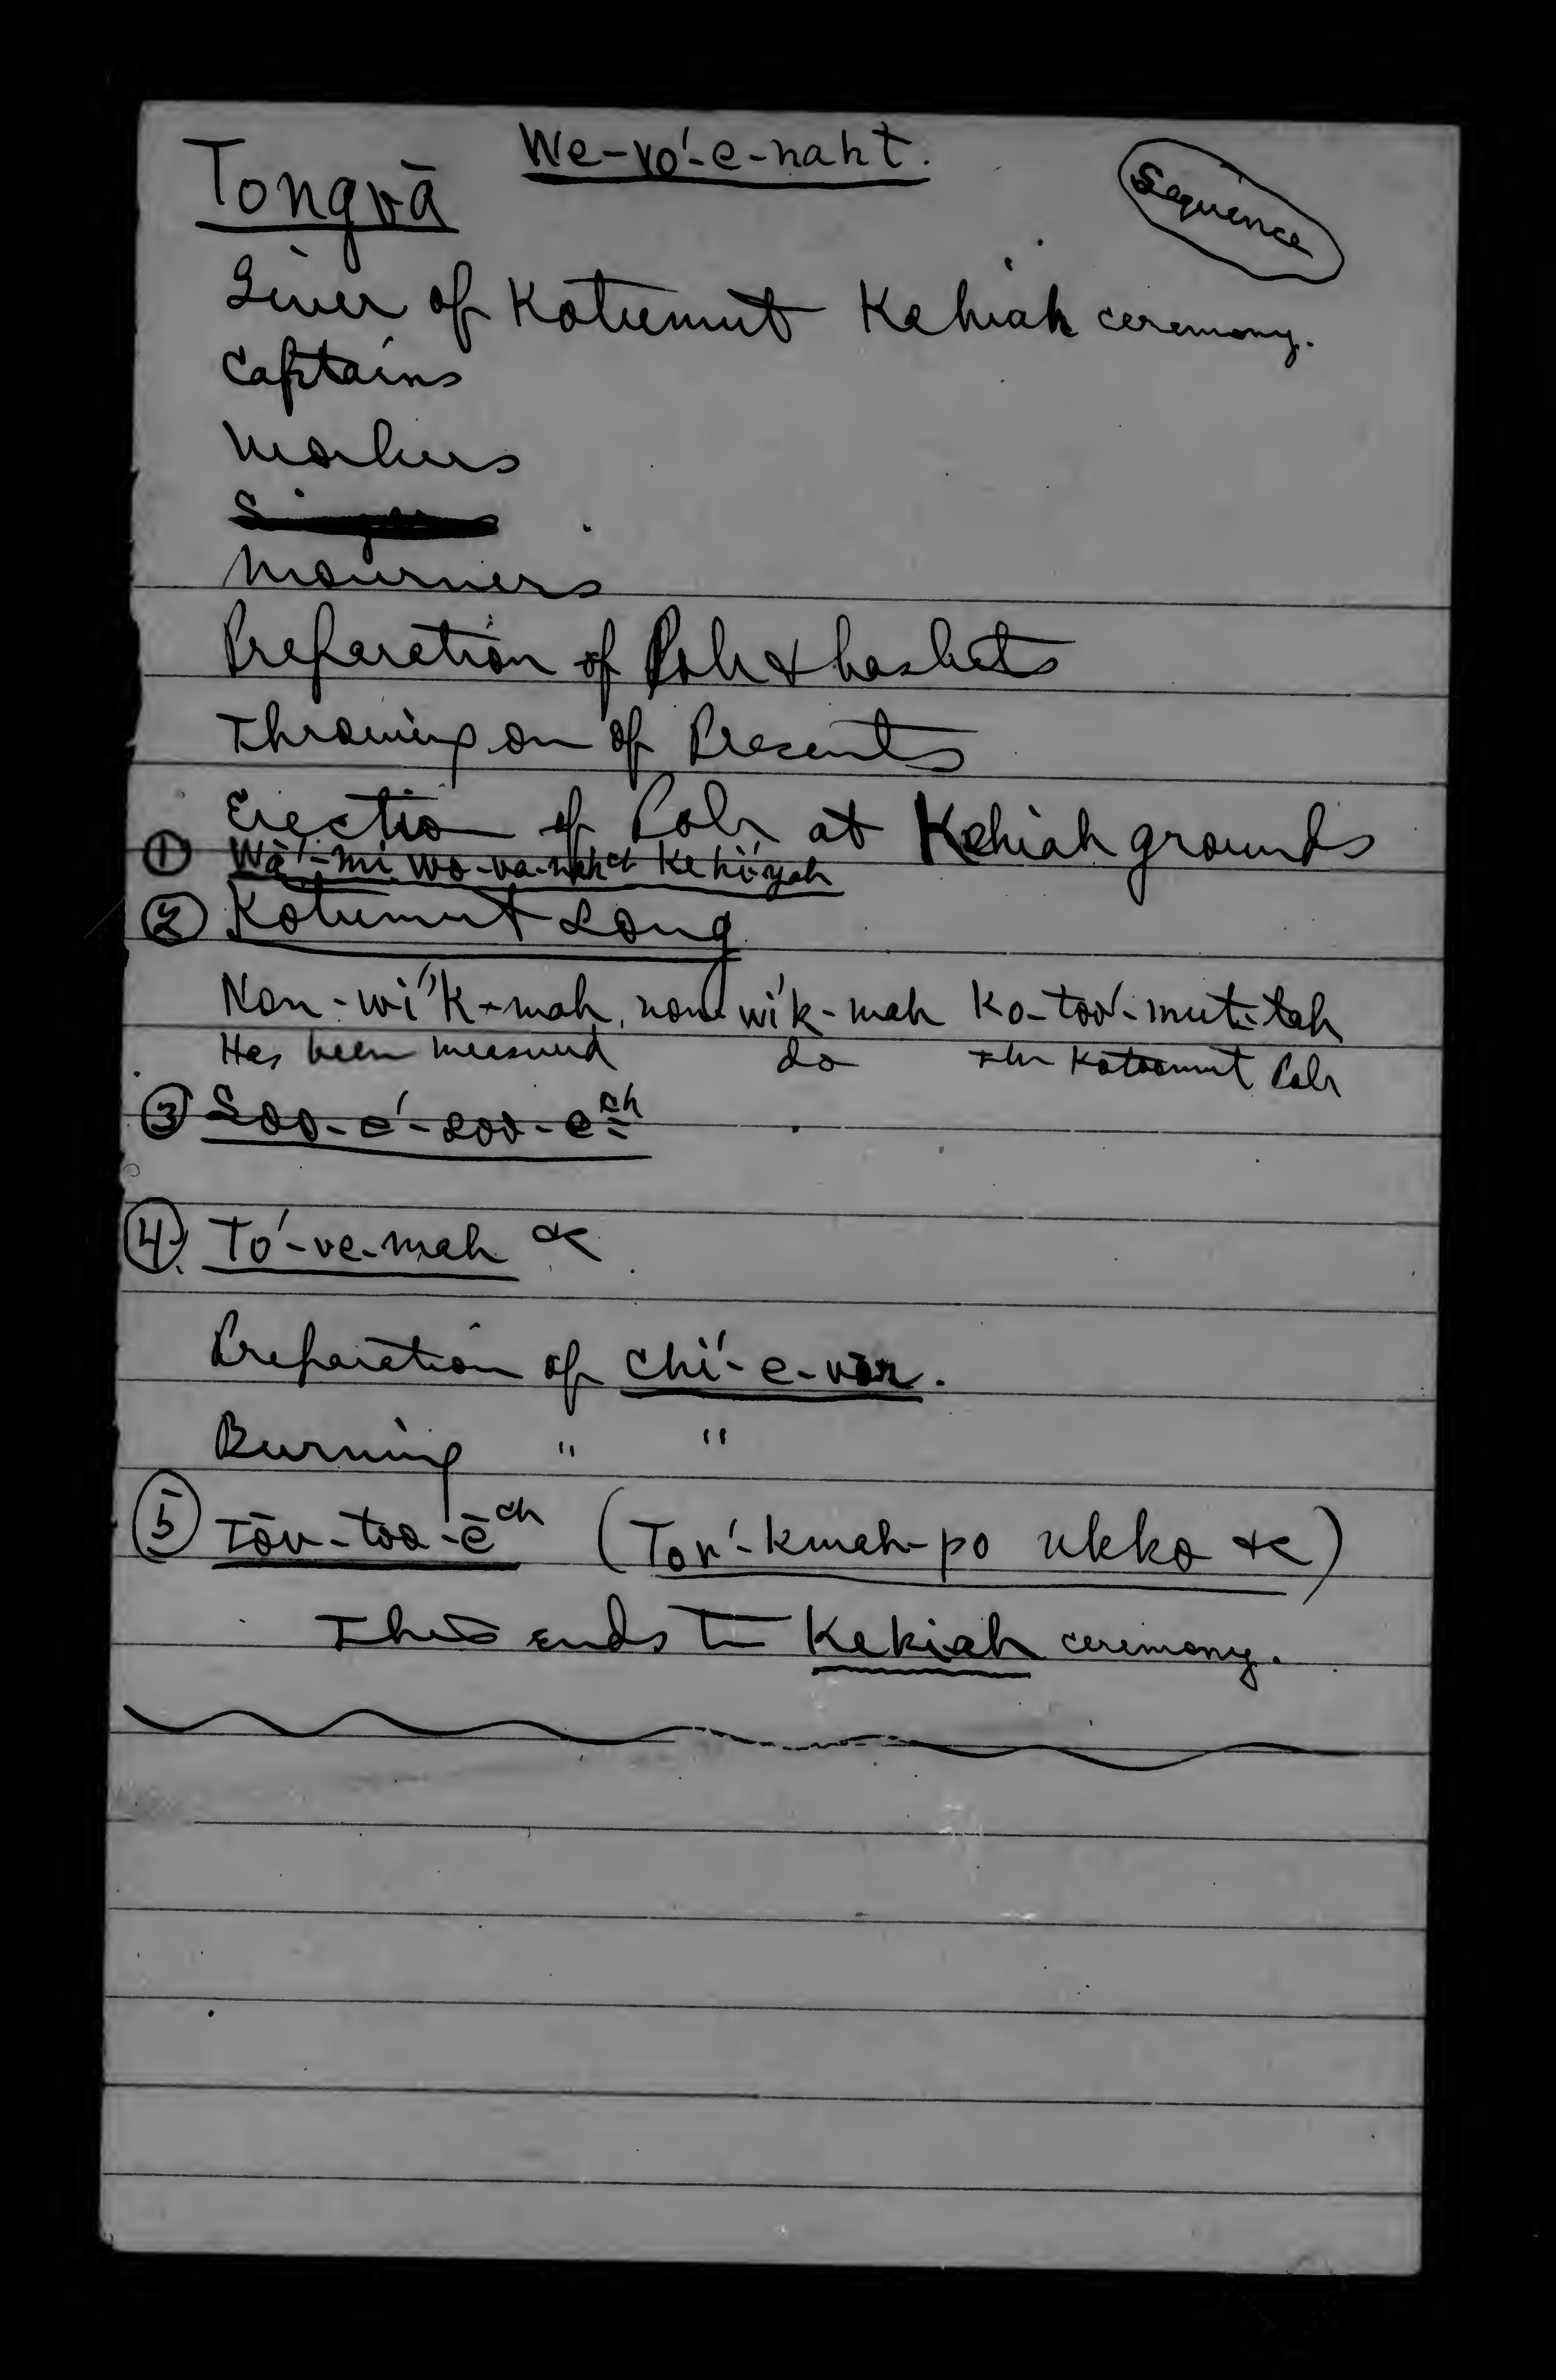 We-vo'-e-naht.
Tongvā
Sequence
Giver of Kotumut Kehiah ceremony.
Captains
Workers
Mourners
Preparation of Pole & baskets
Throwing on of Presents
Erection of Pole at Kehiah grounds
① Wā'-mi wo-va-nah Ke hi'yah
② Kotumut Song
Non-wi'k-mah, non wi'k-mah Ko-too'-mut-tah
Has been measured do the Kotoomut Pole
③ Soo-e'-soo-e ch
④ To'-ve-mah &c
Preparation of chi'-e-vor.
Burning " "
⑤ Tōv-too'-ē ch (Tor'-kwah-po ukko &c)
This ends the Kekiah ceremony.